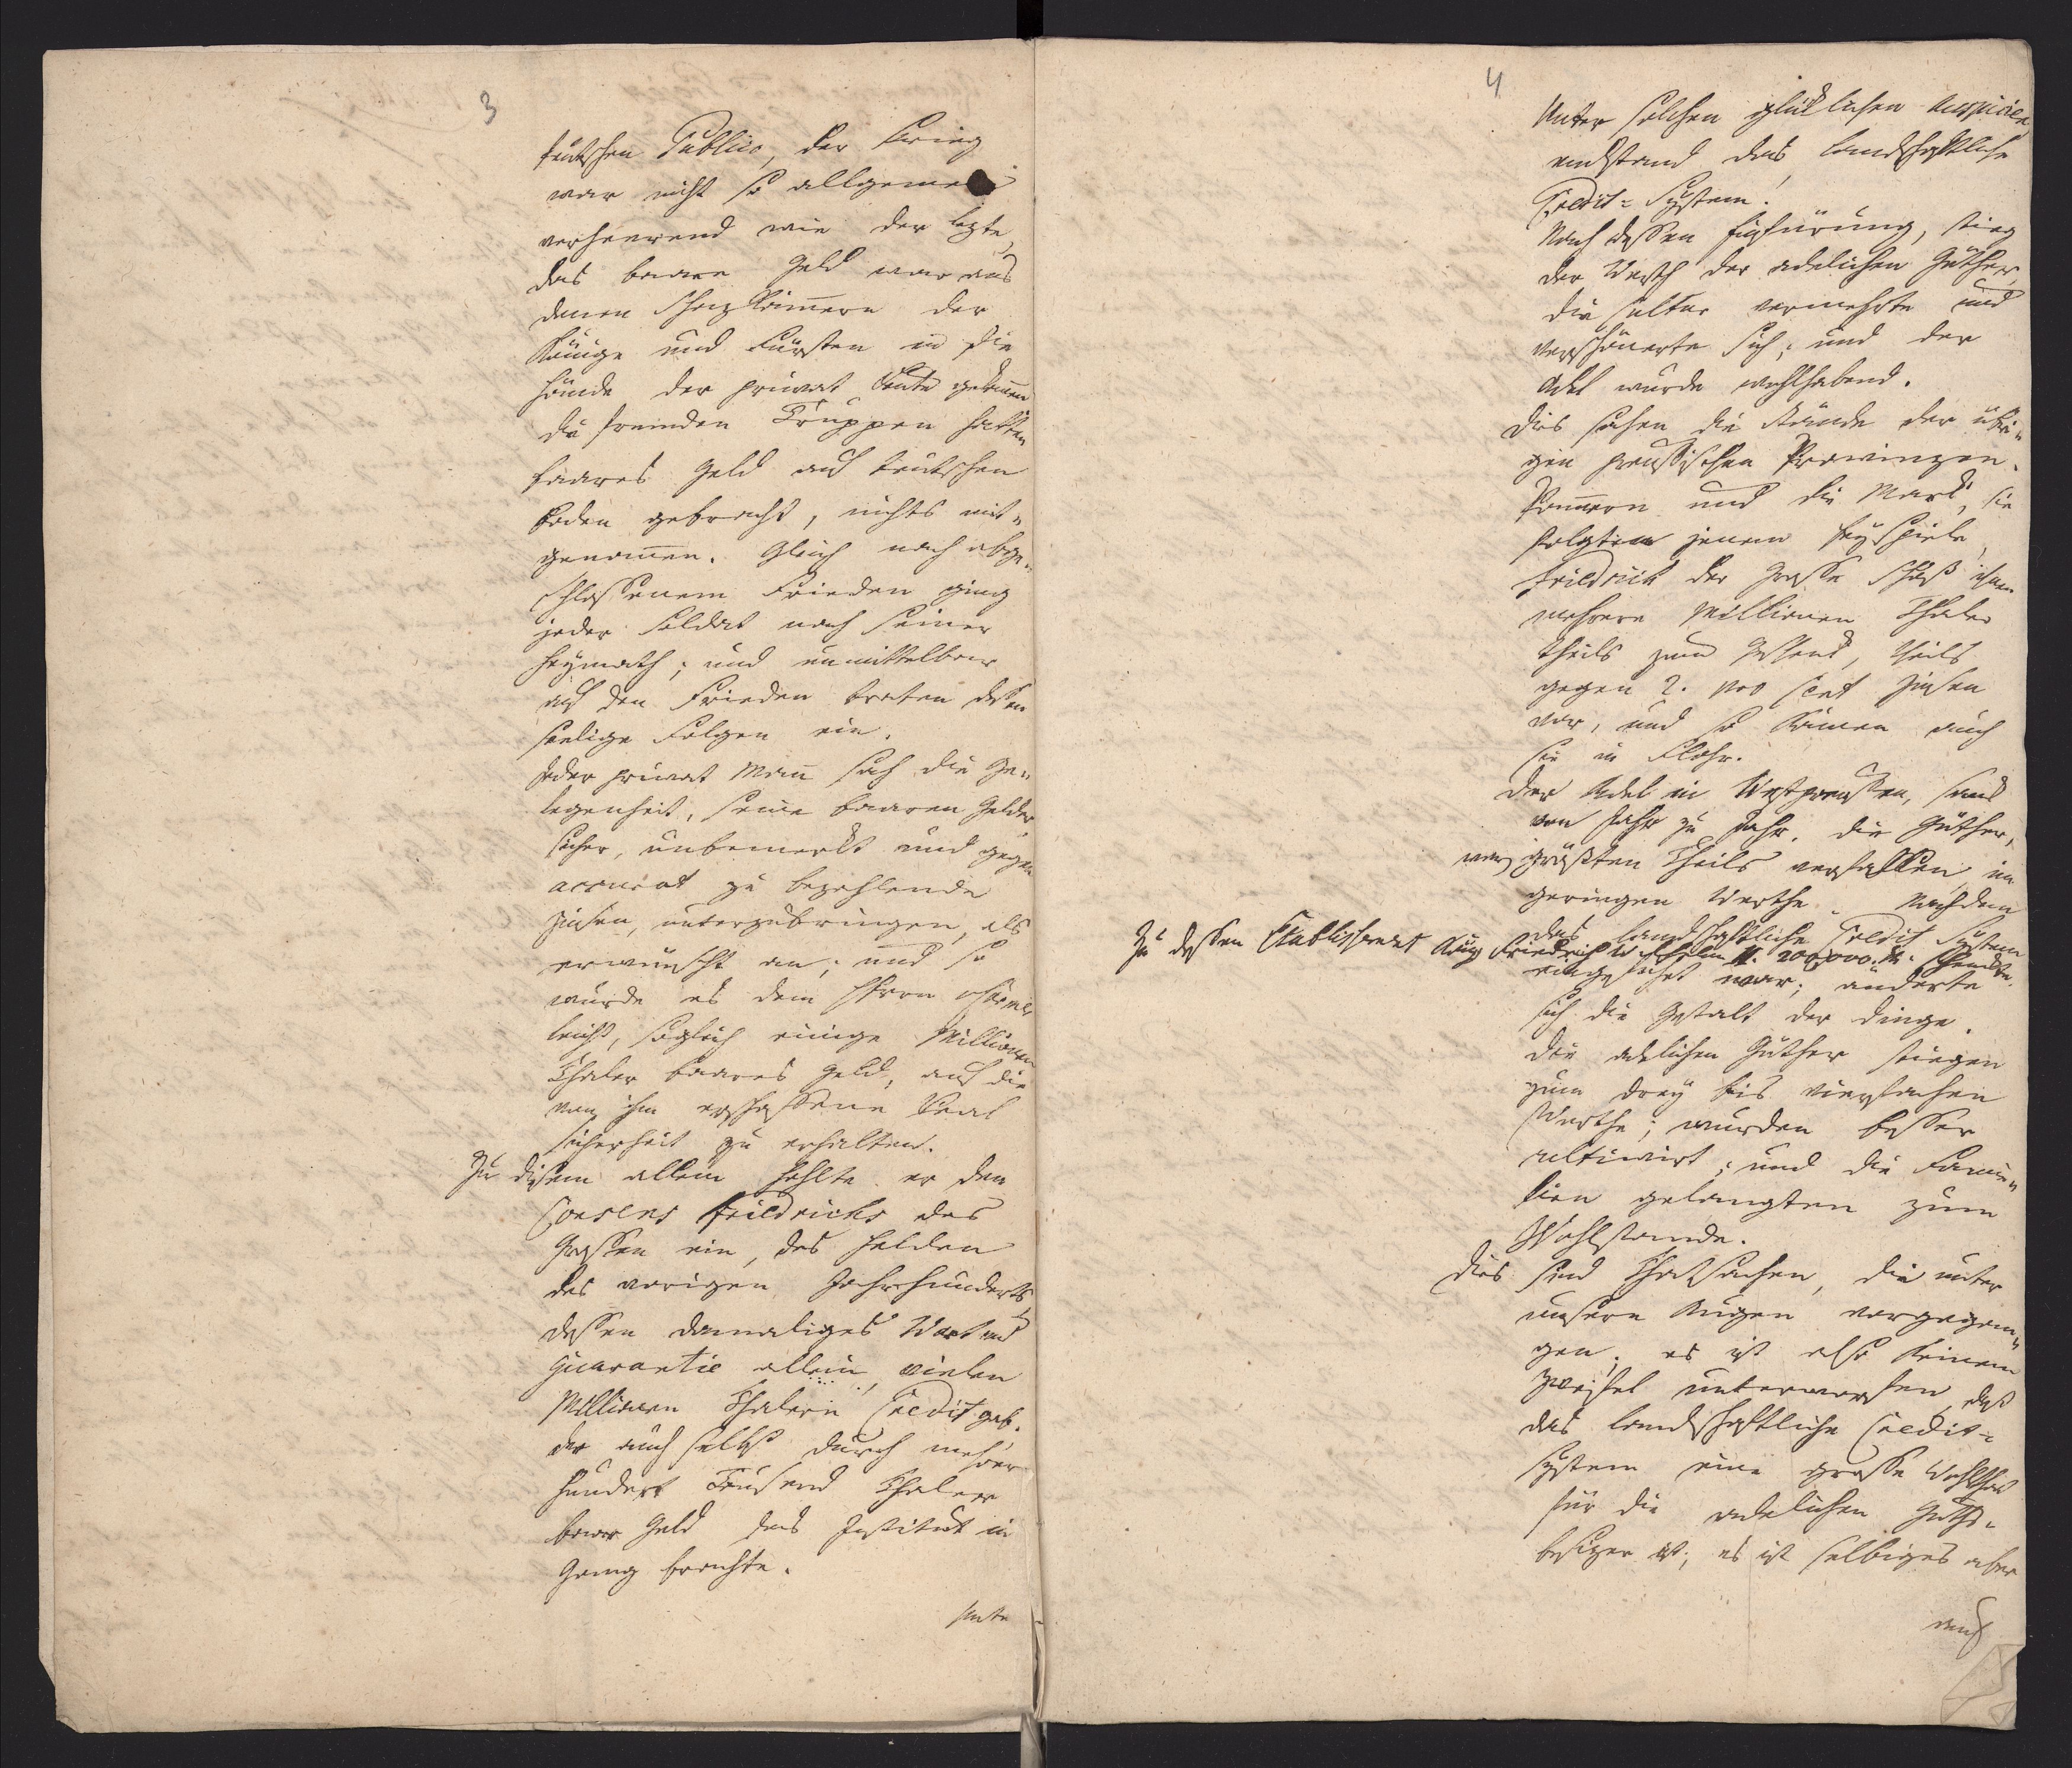 3
teütschen Publico, der Krieg
war nicht so allgemein
verheerend wie der lezte,
das baare Geld war aus
denen Schazkam̄ern der
Könige und Fürsten in die
Hände der privat Leute gekom̄en
die fremden Truppen hatten
baares Geld auf teütschen
Boden gebracht, nichts mit-
genom̄en. Gleich nach abge-
schlossenem Frieden ging
jeder Soldat nach seiner
Heymath; und unmittelbar
auf den Frieden traten dessen
seelige Folgen ein.
Jeder privat Man̄ sah die Ge-
legenheit, seine baaren Gelder
sicher, unbemerkt und gegen
accurat zu bezahlende
Zinsen, unterzubringen, als
erwünscht an; und so
wurde es dem Herrn
leicht, sogleich einige Millionen
Thaler baares Geld, auf die
von ihm erschaffene Real
Sicherheit zu erhalten.
Zu diesem allem hohlte er den
Consens Friedrichs des
Grossen ein, des Helden
des vorigen Jahrhunderts,
dessen damaliges Wort und
Guarantie allein, vielen
Millionen Thalern Credit gab.
der auch selbst durch mehrer
hundert Tausend Thaler
baar Geld das Institut in
Gang brachte.
Unter
4
Unter solchen glüklichen Auspicien
endstand das landschaftliche
Credit-System!
Nach dessen Einfürung, stieg
der Werth der adelichen Güther,
die Cultur vermehrte und
verschönerte sich; und der
Adel wurde wohlhabend.
Dies sahen die Stände der übri-
gen preussischen Provinzen.
Pom̄ern und die Mark, sie
folgten jenem Beyspiele,
Friedrich der Grosse schoß ihnen
mehrere Millionen Thaler
theils zum Geschenk, theils
gegen 2. pro Cent Zinsen
vor, und so kamen auch
sie in Flohr.
Der Adel in Westpreussen, sank
von Jahr zu Jahr. die Güther,
war größten Theils verfallen, im
geringen Werthe. Nachdem
das landschaftliche Credit System
Zu dessen Etablissement König Friedrich Wilhelm II. 200,000. rt. schenkte.
eingeführt war; änderte
sich die Gestalt der Dinge.
Die adelichen Güther stiegen
zum drey bis vierfachen
Werthe; wurden besser
cultivirt; und die Fami-
lien gelangten zum
Wohlstande.
Dies sind Thatsachen, die unter
unsern Augen vorgegan-
gen; es ist also keinem
Zweifel unterworfen, daß
das landschaftliche Credit-
System eine grosse Wohlthat
für die adelichen Guths-
besizer ist; es ist selbiges aber
auch